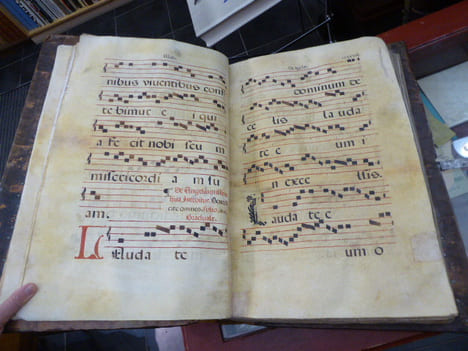 nibus viventibus confi
tebimur e i qui
a fe cit nobi scu m
misericordi a m su
De Angelis
Introitus.
am.
Graduale.
Lauda te
dominum de
ce lis lauda
te e um i
n exce lsis.
Lauda te e
um o